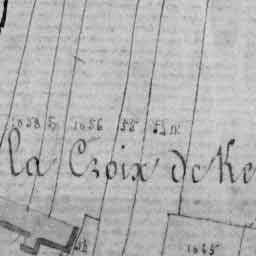 1058 5 1056 55
la Croix de Ke
1065